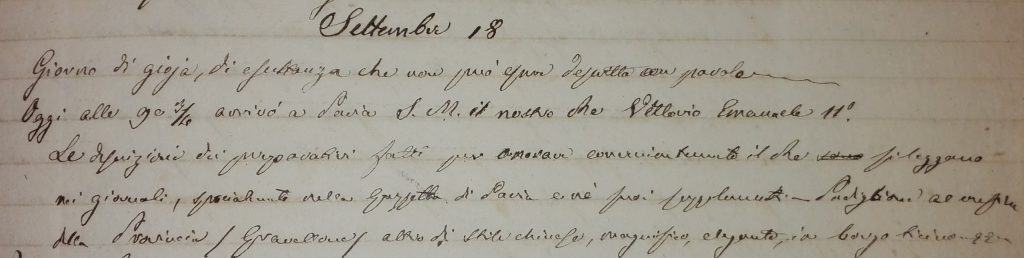 Settembre 18
Giorno di gioja, di esultanza che non può esser descritta con parole
Oggi alle 9 3/4 arrivò a Pavia S. M. il nostro Re Vittorio Emanuele II°.
Le descrizioni dei preparativi fatti per onorare convenientemente il Re si leggano
nei giornali, specialmente nella Gazzetta di Pavia e ne' suoi supplementi - Padiglione al
della Provincia (Gravellone) altro di stile chinese, magnifico, elegante, in borgo ticino